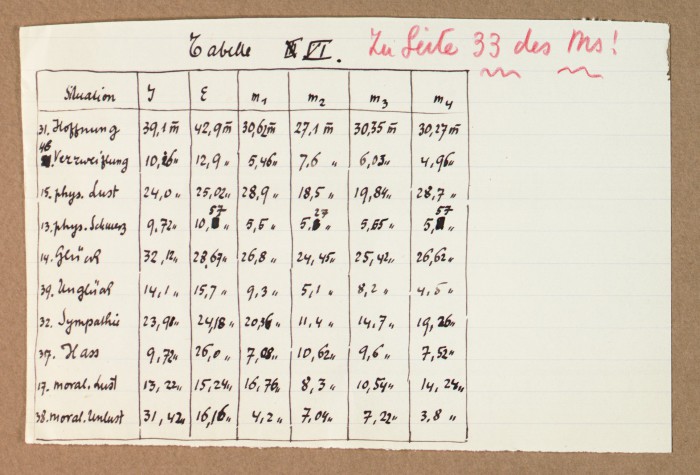 Tabelle VI. Zu Seite 33 des Ms!
Situation J E m1 m2 m3 m4
31. Hoffnung 39,1 m 42,9 m 30,62 m 27,1 m 30,35 m 30,27 m
46. Verzweiflung 10,26 " 12,9 " 5,46 " 7,6 " 6,03 " 4,96 "
15. phys. Lust 24,0 " 25,02 " 28,9 " 18,5 " 19,84 " 28,7 "
13. phys. Schmerz 9,72 " 10,57 " 5,5 " 5,27 " 5,55 " 5,57 "
14. Glück 32,12 " 28,67 " 26,8 " 24,45 " 25,42 " 26,62 "
39. Unglück 14,1 " 15,7 " 9,3 " 5,1 " 8,2 " 4,5 "
32. Sympathie 23,90 " 24,18 " 20,36 " 11,4 " 14,7 " 19,26 "
37. Hass 9,72 " 26,0 " 7,08 " 10,62 " 9,6 " 7,52 "
17. moral. Lust 13,22 " 15,24 " 16,76 " 8,3 " 10,54 " 14,24 "
38. moral. Unlust 31,42 " 16,16 " 4,2 " 7,04 " 7,22 " 3,8 "